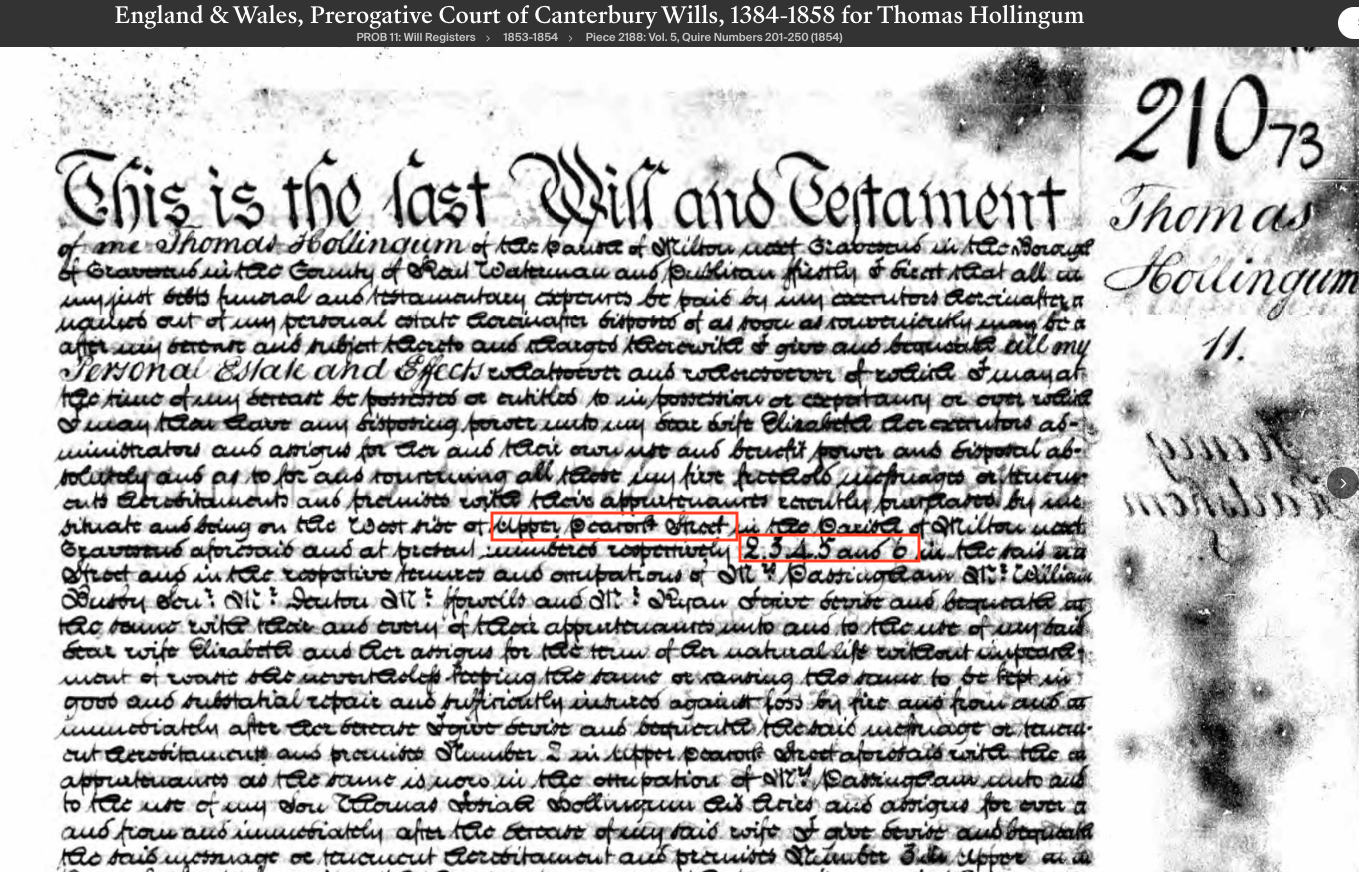 England & Wales, Prerogative Court of Canterbury Wills, 1384-1858 for Thomas Hollingum
PROB 11: Will Registers › 1853-1854 › Piece 2188: Vol. 5, Quire Numbers 201-250 (1854)
210 73
Thomas
Hollingum
11.
This is the last Will and Testament
of me Thomas Hollingum of the parish of Milton next Gravesend in the Borough
of Gravesend in the County of Kent Waterman and Publican firstly I direct that all
my just debts funeral and testamentary expences be paid by my executors hereinafter
named out of my personal estate hereinafter disposed of as soon as conveniently may be
after my decease and subject thereto and charged therewith I give and bequeath all my
Personal Estate and Effects whatsoever and wheresoever of which I may at
the time of my decease be possessed or entitled to in possession or expectancy or over which
I may then have any disposing power unto my dear wife Elizabeth her executors ad-
ministrators and assigns for her and their own use and benefit power and disposal ab-
solutely and as to for and concerning all those my five freehold messuages or tenem-
ents hereditaments and premises with their appurtenants recently purchased by me
situate and being on the West side of Upper Peacock Street in the Parish of Milton next
Gravesend aforesaid and at present numbered respectively 2.3.4.5 and 6 in the said
Street and in the respective tenures and occupations of Mrs Passingham Mr. William
Busby Senr. Mr. Mr. Howells and Mr. Ryan I give devise and bequeath
the same with their and every of their appurtenants unto and to the use of my said
dear wife Elizabeth and her assigns for the term of her natural life without impeach-
ment of waste she nevertheless keeping the same or causing the same to be kept in
good and substatial repair and sufficiently insured against loss by fire and from and
immediately after her decease I give devise and bequeath the said messuage or tenem-
ent hereditaments and premises Number 2 in Upper Peacock Street aforesaid with the
appurtenants as the same is now in the occupation of Mrs Passingham unto and
to the use of my Son Thomas Josiah Hollingum his heirs and assigns for ever
and from and immediately after the decease of my said wife I give devise and bequeath
the said messuage or tenement hereditament and premises Number 3 in Upper